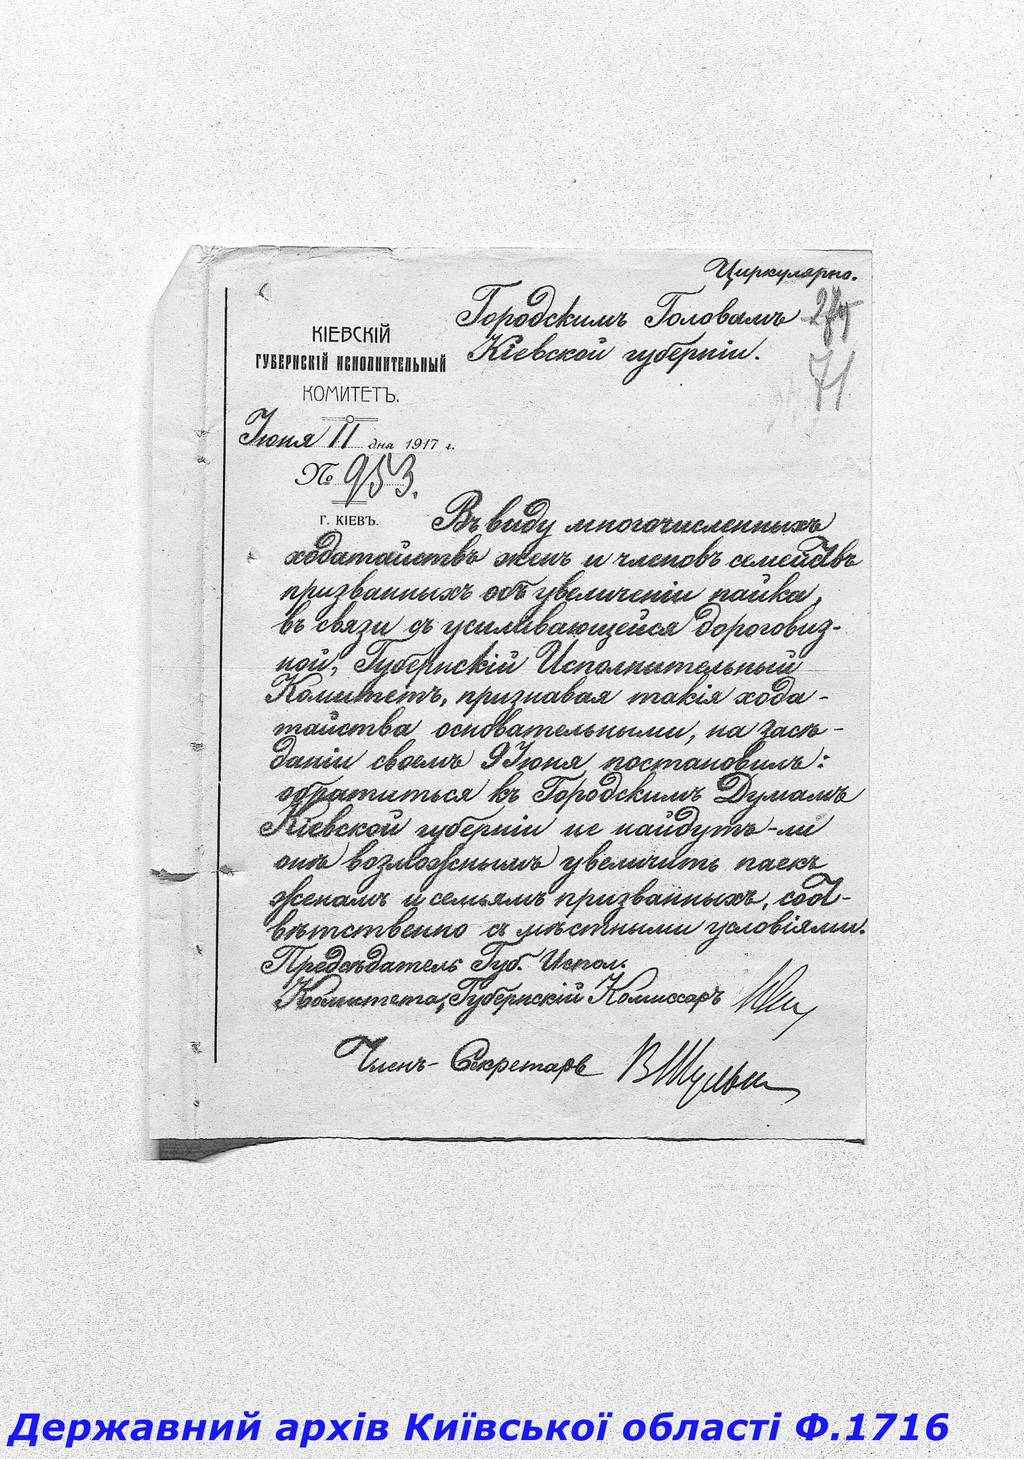 Циркулярно.
Городскимъ Головамъ
Кіевской губерніи.
71
КІЕВСКІЙ
ГУБЕРНСКІЙ ИСПОЛНИТЕЛЬНЫЙ
КОМИТЕТЪ.
Іюня 11 дня 1917 г.
№ 953.
Г. КІЕВЪ.
Въ виду многочисленныхъ
ходатайствъ женъ и членовъ семействъ
призванныхъ объ увеличеніи пайка,
въ связи съ усиливающейся дороговиз-
ной, Губернскій Исполнительный
Комитетъ, признавая такія хода-
тайства основательными, на засѣ-
даніи своемъ 9 Іюня постановилъ:
обратиться къ Городскимъ Думамъ
Кіевской губерніи не найдутъ-ли
онѣ возможнымъ увеличить паекъ
женамъ и семьямъ призванныхъ, соот-
вѣтственно съ мѣстными условіями.
Предсѣдатель Губ. Испол.
Комитета, Губернскій Комиссаръ
Членъ-Секретарь
Державний архів Київської області Ф.1716